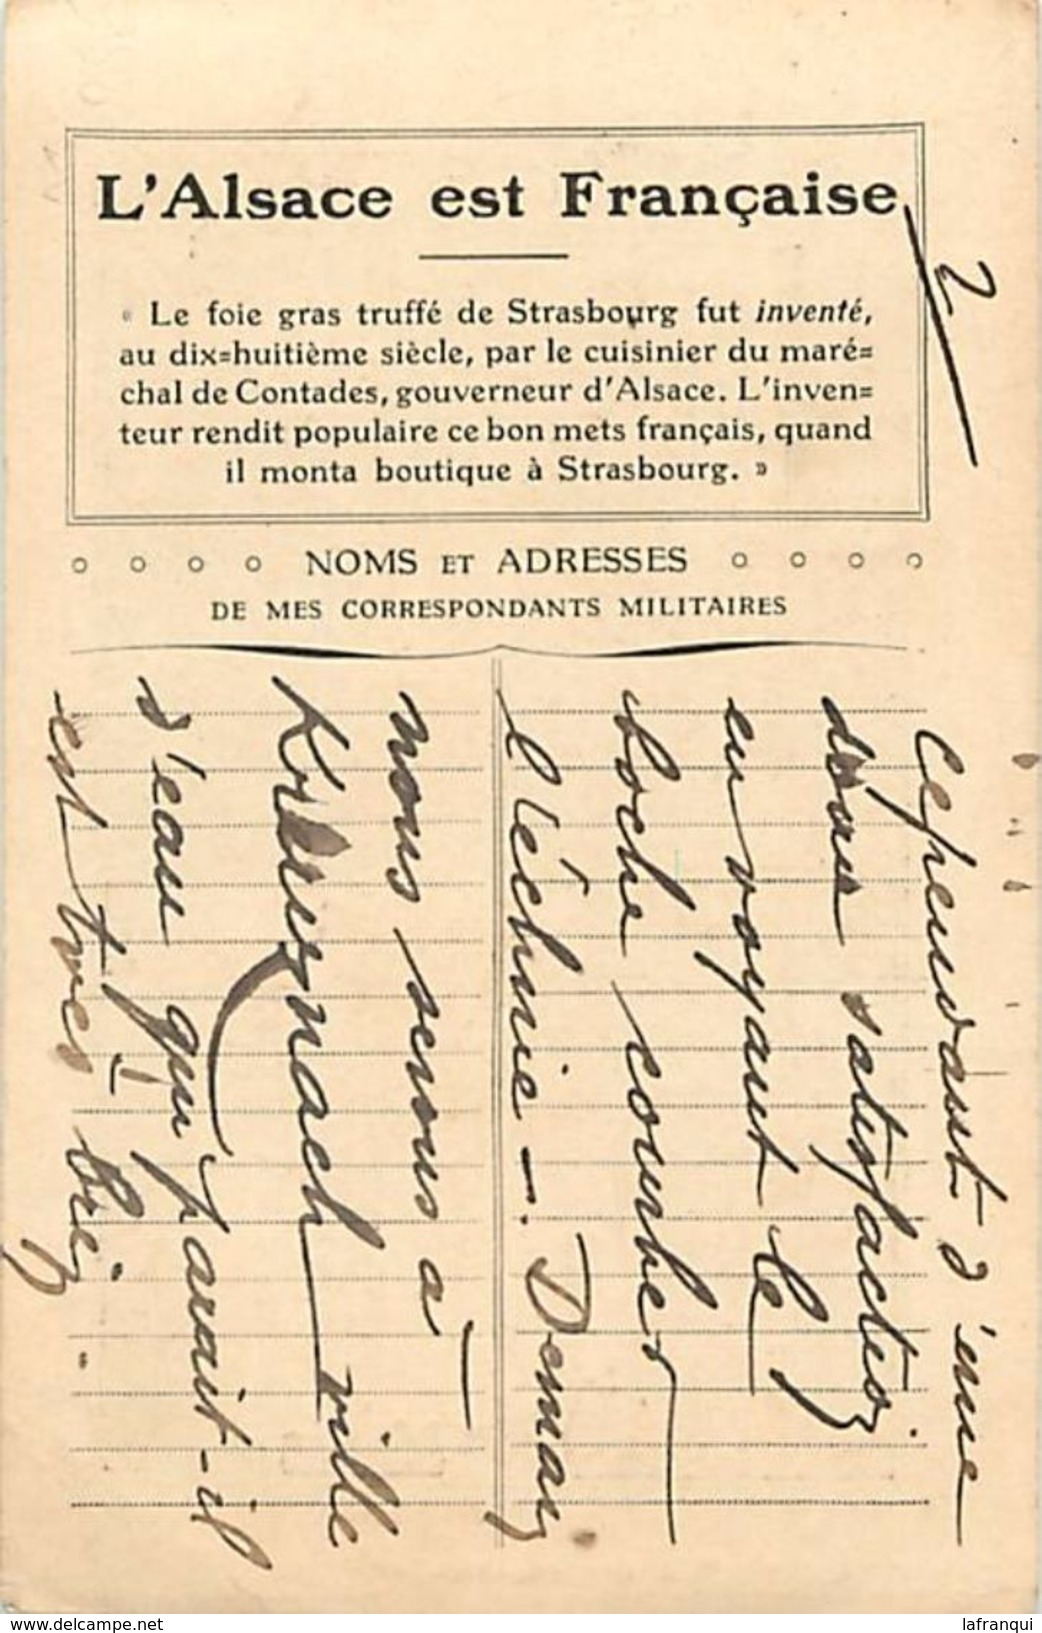 L'Alsace est Française
« Le foie gras truffé de Strasbourg fut inventé,
au dix=huitième siècle, par le cuisinier du maré=
chal de Contades, gouverneur d'Alsace. L'inven=
teur rendit populaire ce bon mets français, quand
il monta boutique à Strasbourg. »
2
NOMS ET ADRESSES
DE MES CORRESPONDANTS MILITAIRES
Cependant d'une
satisfaction
en voyant le
boche courber
l'échine - Demain
nous serons à
Kreuznach ville
d'eau qui parait-il
est très
delcampe.net
lafranqui